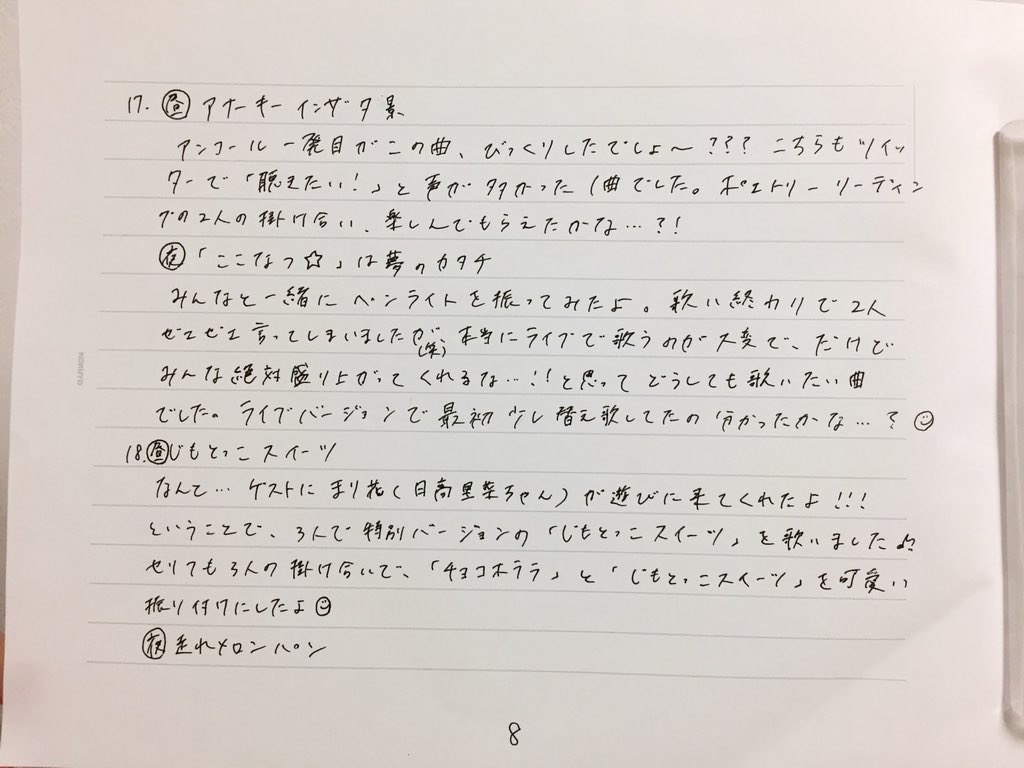 17. 昼 アナーキーインザ夕景
アンコール一発目がこの曲、びっくりしたでしょ〜??? こちらもツイッ
ターで「聴きたい!」と声が多かった1曲でした。ポエトリーリーディン
グの2人の掛け合い、楽しんでもらえたかな…?!
夜「ここなつ☆」は夢のカタチ
みんなと一緒にペンライトを振ってみたよ。歌い終わりで2人
ゼエゼエ言ってしまいましたが(笑)、本当にライブで歌うのが大変で、だけど
みんな絶対盛り上がってくれるな…!!と思ってどうしても歌いたい曲
でした。ライブバージョンで最初少し替え歌してたの分かったかな…? ☺
18. 昼 じもとっこスイーツ
なんと… ゲストにまり花(日高里菜ちゃん)が遊びに来てくれたよ!!!
ということで、3人で特別バージョンの「じもとっこスイーツ」を歌いました♪
セリフも3人の掛け合いで、「チョコホララ」と「じもとっこスイーツ」を可愛い
振り付けにしたよ☺
夜 走れメロンパン
8
KOKUYO